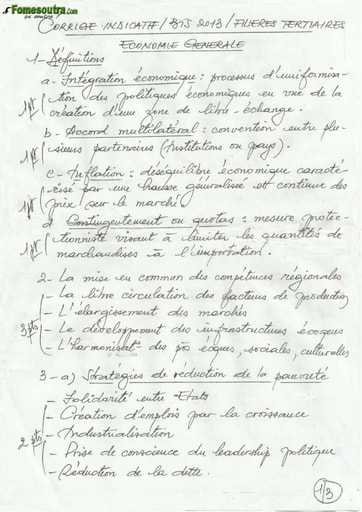 Fomesoutra.com
CORRIGE INDICATIF / BTS 2013 / FILIERES TERTIAIRES
ECONOMIE GENERALE
1- Définitions
a- Intégration économique : processus d'uniformisa-
1pt tion des politiques économiques en vue de la
création d'une zone de libre-échange.
b- Accord multilatéral : convention entre plu-
1pt sieurs partenaires (institutions ou pays).
c- Inflation : déséquilibre économique caracté-
1pt risé par une hausse généralisée et continue des
prix sur le marché
d Contingentement ou quotas : mesure protec-
1pt tionniste visant à limiter les quantités de
marchandises à l'importation.
2- La mise en commun des compétences régionales
- La libre circulation des facteurs de production
- L'élargissement des marchés
3pts - Le développement des infrastructures écoques
- L'harmonisat° des pos éques, sociales, culturelles
3- a) Stratégies de réduction de la pauvreté
- Solidarité entre Etats
- Création d'emplois par la croissance
2pts - Industrialisation
- Prise de conscience du leadership politique
- Réduction de la dette.
1/3